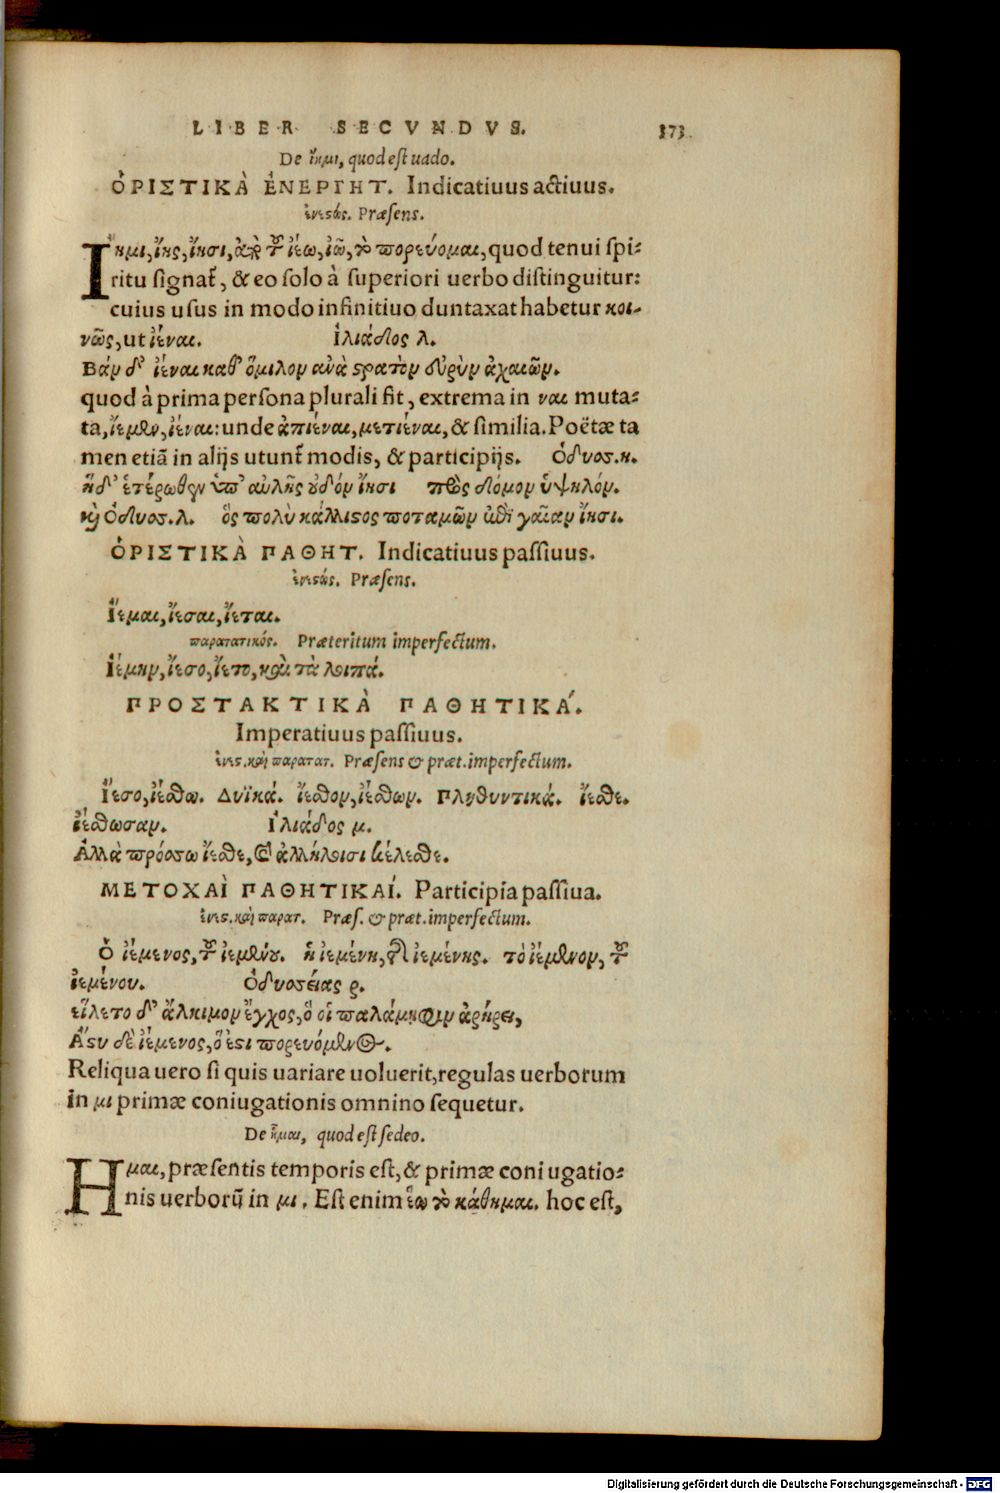 LIBER SECVNDVS. 173
De ἴημι, quod est uado.
ὉΡΙΣΤΙΚᾺ ἘΝΕΡΓΗΤ. Indicatiuus actiuus.
ἐνεστώς. Præsens.
Ἴημι, ἴης, ἴησι, ἀπὸ τοῦ ἰέω, ἰῶ, τὸ πορεύομαι, quod tenui spi-
ritu signat̃, & eo solo à superiori uerbo distinguitur:
cuius usus in modo infinitiuo duntaxat habetur κοι-
νῶς, ut ἰέναι. Ἰλιάδος λ.
Βάν δ' ἰέναι καθ' ὅμιλον ἀνὰ στρατὸν εὐρὺν ἀχαιῶν.
quod à prima persona plurali fit, extrema in ναι muta-
ta, ἵεμεν, ἰέναι: unde ἀπιέναι, μετιέναι, & similia. Poëtæ ta
men etiã in alijs utunt̃ modis, & participijs. Ὀδυσ. η.
ἥ δ' ἑτέρωθεν ὑπ' αὐλῆς οὐδόν ἴησι πρὸς δόμον ὑψηλόν.
καὶ Ὀδυσ. λ. ὃς πολὺ κάλλιστος ποταμῶν ἐπὶ γαῖαν ἴησι.
ὉΡΙΣΤΙΚᾺ ΠΑΘΗΤ. Indicatiuus passiuus.
ἐνεστώς. Præsens.
Ἴεμαι, ἴεσαι, ἴεται.
παρατατικός. Præteritum imperfectum.
Ἰέμην, ἴεσο, ἴετο, καὶ τὰ λοιπά.
ΠΡΟΣΤΑΚΤΙΚᾺ ΠΑΘΗΤΙΚΆ.
Imperatiuus passiuus.
ἐνεσ. καὶ παρατατ. Præsens & præt. imperfectum.
Ἴεσο, ἰέσθω. Δυϊκά. ἴεσθον, ἰέσθων. Πληθυντικά. ἴεσθε.
ἰέσθωσαν. Ἰλιάδος μ.
Ἀλλὰ πρόσσω ἴεσθε, καὶ ἀλλήλοισι κέλεσθε.
ΜΕΤΟΧΑῚ ΠΑΘΗΤΙΚΑΊ. Participia passiua.
ἐνεσ. καὶ παρατ. Præs. & præt. imperfectum.
Ὁ ἰέμενος, τοῦ ἰεμένου. ἡ ἰεμένη, τῆς ἰεμένης. τὸ ἰέμενον, τοῦ
ἰεμένου. Ὀδυσσείας ρ.
εἵλετο δ' ἄλκιμον ἔγχος, ὅ οἱ παλάμηφιν ἀρήρει,
Ἄστυ δὲ ἰέμενος, ὅ ἐστι πορευόμενος.
Reliqua uero si quis uariare uoluerit, regulas uerborum
in μι primæ coniugationis omnino sequetur.
De ἧμαι, quod est sedeo.
Ημαι, præsentis temporis est, & primæ coniugatio-
nis uerborũ in μι. Est enim ἕω τὸ κάθημαι. hoc est,
Digitalisierung gefördert durch die Deutsche Forschungsgemeinschaft - DFG